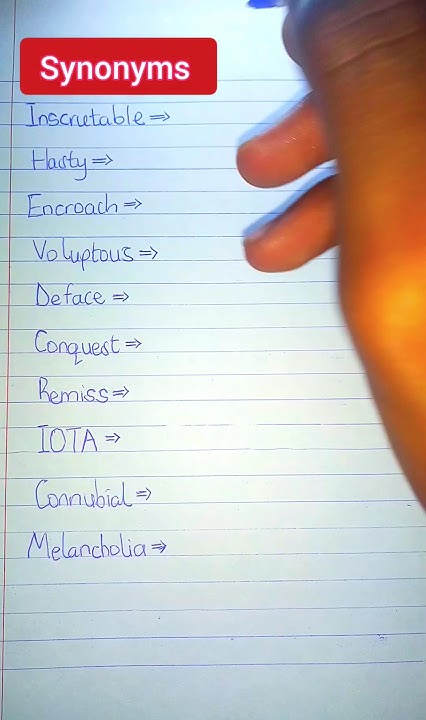 Synonyms
Inscrutable ⇒
Hasty ⇒
Encroach ⇒
Voluptous ⇒
Deface ⇒
Conquest ⇒
Remiss ⇒
IOTA ⇒
Connubial ⇒
Melancholia ⇒